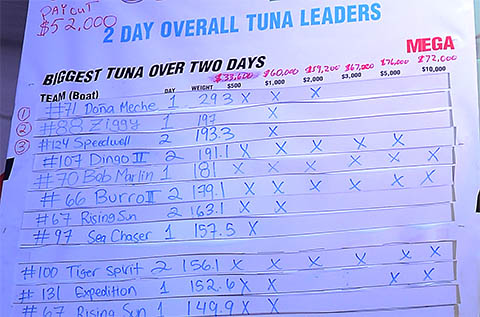 PAYOUT
$52,000
2 DAY OVERALL TUNA LEADERS
MEGA
BIGGEST TUNA OVER TWO DAYS
$33,620 $60,000 $19,200 $67,200 $76,000 $72,000
TEAM (Boat) DAY WEIGHT $500 $1,000 $2,000 $3,000 $5,000 $10,000
1 #71 Doña Meche 1 293 X X X
2 #88 Ziggy 1 197 X
3 #124 Speedwell 2 193.3 X
#107 Dingo II 2 191.1 X X X X X
#70 Bob Marlin 1 181 X X X X X X
#66 Burro II 2 179.1 X X X X X X
#67 Rising Sun 2 163.1 X X
#97 Sea Chaser 1 157.5 X
#100 Tiger Spirit 2 156.1 X X X X X X
#131 Expedition 1 152.6 X X X X
#67 Rising Sun 1 149.9 X X